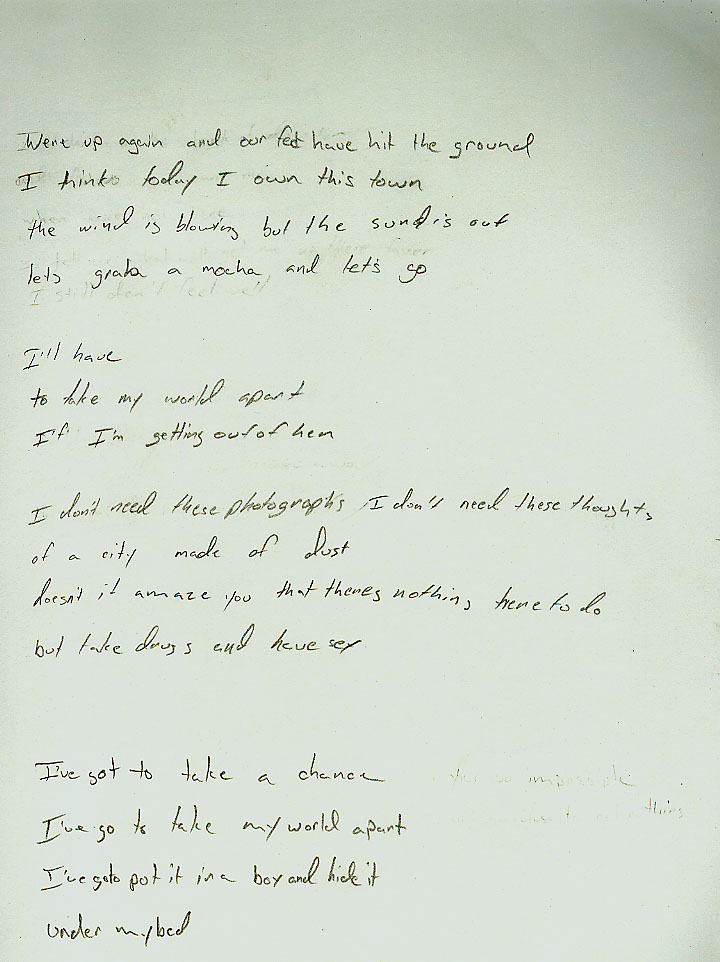 Were up again and our feet have hit the ground
I think today I own this town
the wind is blowing but the sun is out
lets grab a mocha and let's go
I still don't feel well
I'll have
to take my world apart
If I'm getting out of here
I don't need these photographs I don't need these thoughts
of a city made of dust
doesn't it amaze you that theres nothing here to do
but take drugs and have sex
I've got to take a chance
I've go to take my world apart
I've goto put it in a box and hide it
under my bed